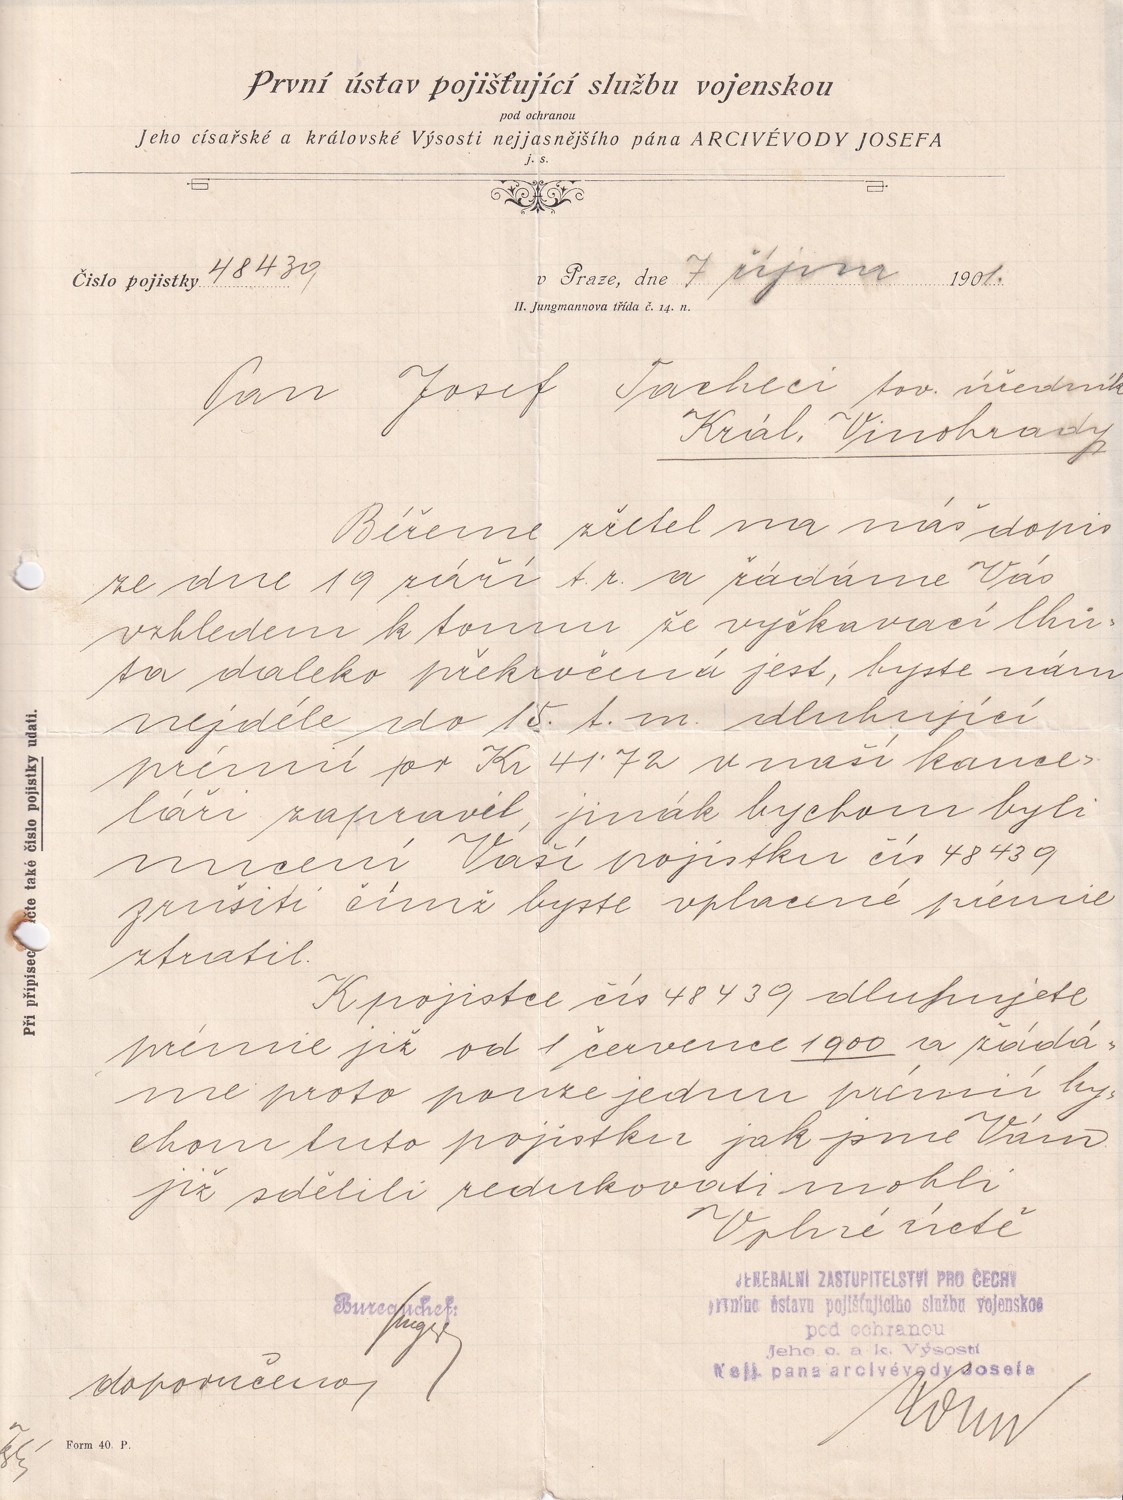 První ústav pojišťující službu vojenskou
pod ochranou
Jeho císařské a královské Výsosti nejjasnějšího pána ARCIVÉVODY JOSEFA
j. s.
Čislo pojistky 48439
v Praze, dne 7 října 1901.
II. Jungmannova třída č. 14. n.
Pan Josef Tacheci tov. úředník
Král. Vinohrady
Béřeme zřetel na náš dopis
ze dne 19 září t. r. a žádáme Vás
vzhledem k tomu že vyčkavací lhů-
ta daleko překročená jest, byste nám
nejdéle do 15. t. m. dluhující
prémii pr Kr 41·72 v naší kance-
láři zapravil, jinák bychom byli
nuceni Vaší pojistku čís 48439
zrušiti čímž byste vplacené prémie
ztratil.
K pojistce čís 48439 dluhujete
prémie již od 1 července 1900 a žádá-
me proto pouze jednu prémii by-
chom tuto pojistku jak jsme Vám
již sdělili redukovati mohli
V plné úctě
Bureauchef:
JENERÁLNÍ ZASTUPITELSTVÍ PRO ČECHY
prvního ústavu pojišťujícího službu vojenskou
pod ochranou
Jeho c. a k. Výsosti
Nejj. pana arcivévody Josefa
doporučeno
Form 40. P.
Při přípisec čte také číslo pojistky udati.